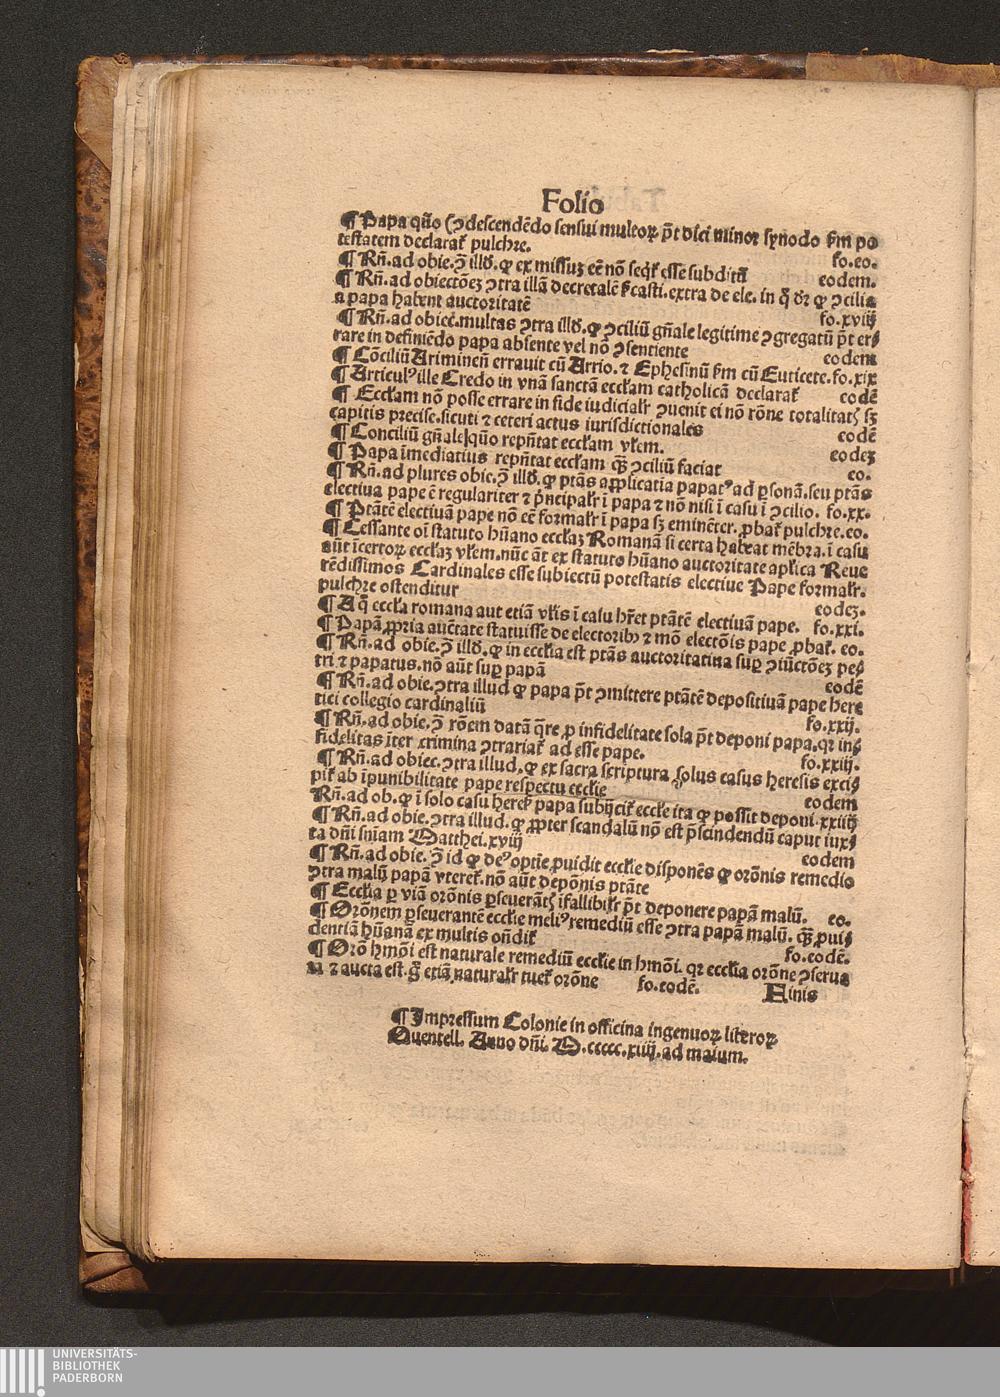 Folio
¶ Papa quō (ꝯdescendēdo sensui multoꝝ p̄t dici minor synodo ẜm po
testatem declarat̄ pulchre. fo.eo.
¶ Rn̄. ad obie. ꝯ̄ illḋ. ꝙ ex missuꝫ eē nō seqt̄ esse subditū eodem.
¶ Rn̄. ad obiectōeꝫ ꝯtra illā decretalē ẜcasti. extra de ele. in q̄ dr̄ ꝙ ꝯcilia
a papa habent auctoritatē fo.xviij
¶ Rn̄. ad obiec̄. multas ꝯtra illḋ. ꝙ ꝯciliū gn̄ale legitime ꝯgregatū p̄t er⸗
rare in definiēdo papa absente vel nō ꝯsentiente eodem
¶ Cōciliū Ariminen̄ errauit cū Arrio. ⁊ Ephesinū ẜm cū Euticete. fo.xix
¶ Articulꝰ ille Credo in vnā sanctā eccl̄am catholicā declarat̄ eodē
¶ Eccl̄am nō posse errare in fide iudicialr̄ ꝯuenit ei nō rōne totalitatꝭ sꝫ
capitis precise. sicuti ⁊ ceteri actus iurisdictionales eodē
¶ Conciliū gn̄ale quō repn̄tat eccl̄am vl̄em. eodeꝫ
¶ Papa īmediatius repn̄tat eccl̄am qꝫ̄ ꝯciliū faciat eo.
¶ Rn̄. ad plures obie. ꝯ̄ illḋ. ꝙ ptās applicatiua papatꝰ ad ꝑsonā. seu ptās
electiua pape ē regulariter ⁊ pn̄cipalr̄ ī papa ⁊ nō nisi ī casu ī ꝯcilio. fo.xx.
¶ Ptātē electiuā pape nō eē formalr̄ ī papa sꝫ eminēter. ꝓbat̄ pulchre. eo.
¶ Cessante oī statuto hūano eccl̄aꝫ Romanā si certa habeat mēbra. ī casu
aūt īcertoꝝ eccl̄aꝫ vl̄em. nūc āt ex statuto hūano auctoritate apl̄ica Reue
rēdissimos Cardinales esse subiectū potestatis electiue Pape formalr̄.
pulchre ostenditur eodeꝫ.
¶ A q̄ eccl̄a romana aut etiā vl̄is ī casu hr̄et ptātē electiuā pape. fo.xxi.
¶ Papā ꝓpria auc̄tate statuisse de electoribꝫ ⁊ mō electōis pape ꝓbat̄. eo.
¶ Rn̄. ad obie. ꝯ̄ illḋ. ꝙ in eccl̄ia est ptās auctoritatiua suꝑ ꝯiūctōeꝫ pe⸗
tri ⁊ papatus. nō aūt suꝑ papā eodē
¶ Rn̄. ad obie. ꝯtra illud ꝙ papa p̄t ꝯmittere ptātē depositiuā pape here
tici collegio cardinaliū fo.xxij.
¶ Rn̄. ad obie. ꝯ̄ rōem datā q̄re ꝓ infidelitate sola p̄t deponi papa. qꝛ in⸗
fidelitas īter crimina ꝯtrariat̄ ad esse pape. fo.xxiij.
¶ Rn̄. ad obiec. ꝯtra illud, ꝙ ex sacra scriptura solus casus heresis exci⸗
pit̄ ab īpunibilitate pape respectu eccl̄ie eodem
Rn̄. ad ob. ꝙ ī solo casu heret̄ papa subijcit̄ eccl̄e ita ꝙ possit deponi. xxiiij
¶ Rn̄. ad obie. ꝯtra illud. ꝙ ꝓpter scandalū nō est p̄scindendū caput iux⸗
ta dn̄i sn̄iam Matthei. xviij eodem
¶ Rn̄. ad obie. ꝯ̄ id ꝙ deꝰ optīe ꝓuidit eccl̄ie dispone̅s ꝙ orōnis remedio
ꝯtra malū papā vteret̄. nō aūt depōnis ptāte
¶ Eccl̄ia ꝑ viā orōnis ꝑseuerātꝭ ifallibilr̄ p̄t deponere papā malū. eo.
¶ Orōnem ꝑseuerantē eccl̄ie meliꝰ remediū esse ꝯtra papā malū. qꝫ̄ ꝓui⸗
dentiā hūanā ex multis on̄dit̄ fo.eodē.
¶ Orō hmōi est naturale remediū eccl̄ie in hmōi. qꝛ eccl̄ia orōne ꝯserua
ta ⁊ aucta est. gͦ etiā naturalr̄ tuet̄ orōne fo.eodē. Finis
¶ Impressum Colonie in officina ingenuoꝝ literoꝝ
Quentell. Anno dn̄i. M.ccccc.xiiij. ad maium.
UNIVERSITÄTS-
BIBLIOTHEK
PADERBORN